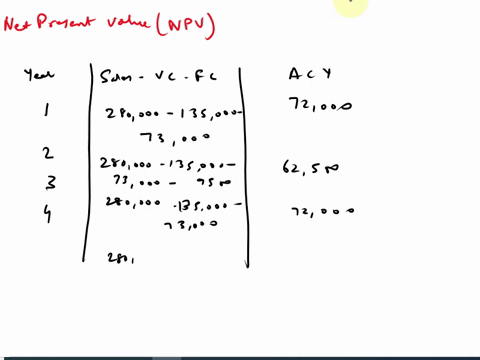 Net Present value (NPV)
Year Sales - VC - FC A C Y
1 280,000 - 135,000 - 72,000
73,000
2
280,000 - 135,000 - 62,500
3 73,000 - 7500
280,000 - 135,000 - 72,000
4 73,000
280,